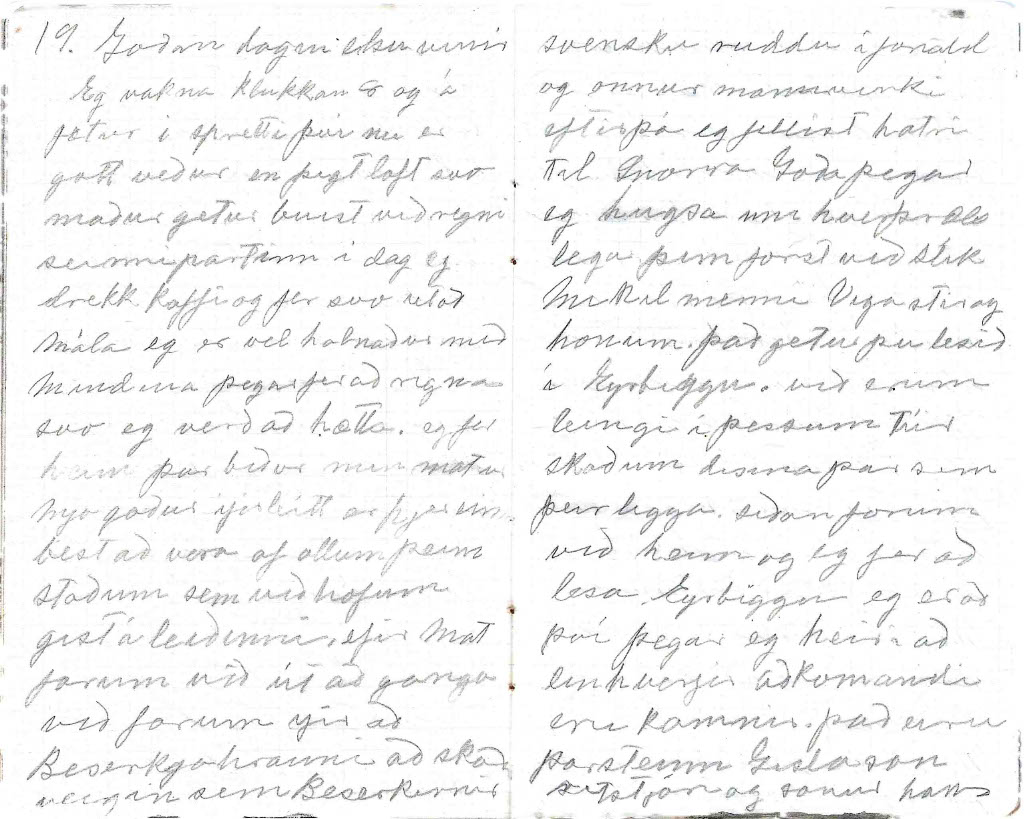 19. Goðan dagin elsku vinir
Eg vakna klukkan 8 og á
fætur i spretti þvi nu er
gott veður en þigt loft svo
maður getur buist við regni
seinnipartinn i dag eg
drekk kaffi og fer svo út að
mála eg er vel halnaður með
mindina þegar fer að rigna
svo eg verð að hætta. eg fer
heim þar biður min matur
mjo goður ifirleitt er hjer einna
best að vera af ollum þeim
stoðum sem við hofum
gist á leiðinni. efir mat
forum við út að ganga
við forum ifir að
Beserkjahrauni að skoða
veigin sem Beserkirnir
svensku ruddu i forn öld
og onnur mannvirki
eftir þá eg fillist hatri
til Snorra Goða þegar
eg hugsa um hver þræls
lega þeim forst við slik
mikil menni Viga stir og
honum. það getur þu lesið
i Eyrbiggu. við erum
leingi i þessum túr
skoðum disina þar sem
þeir liggja. siðan forum
við heim og eg fer að
lesa Eyrbiggu eg er að
þvi þegar eg heiri að
einhverjir aðkomandi
eru komnir. það eru
þorsteinn Gislason
ritstjóri og sonur hans